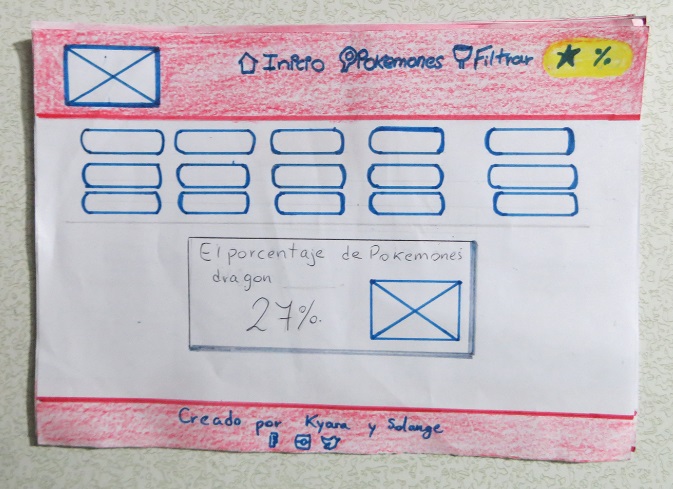 Inicio Pokemones Filtrar %
El porcentaje de Pokemones
dragon
27%.
Creado por Kyara y Solange